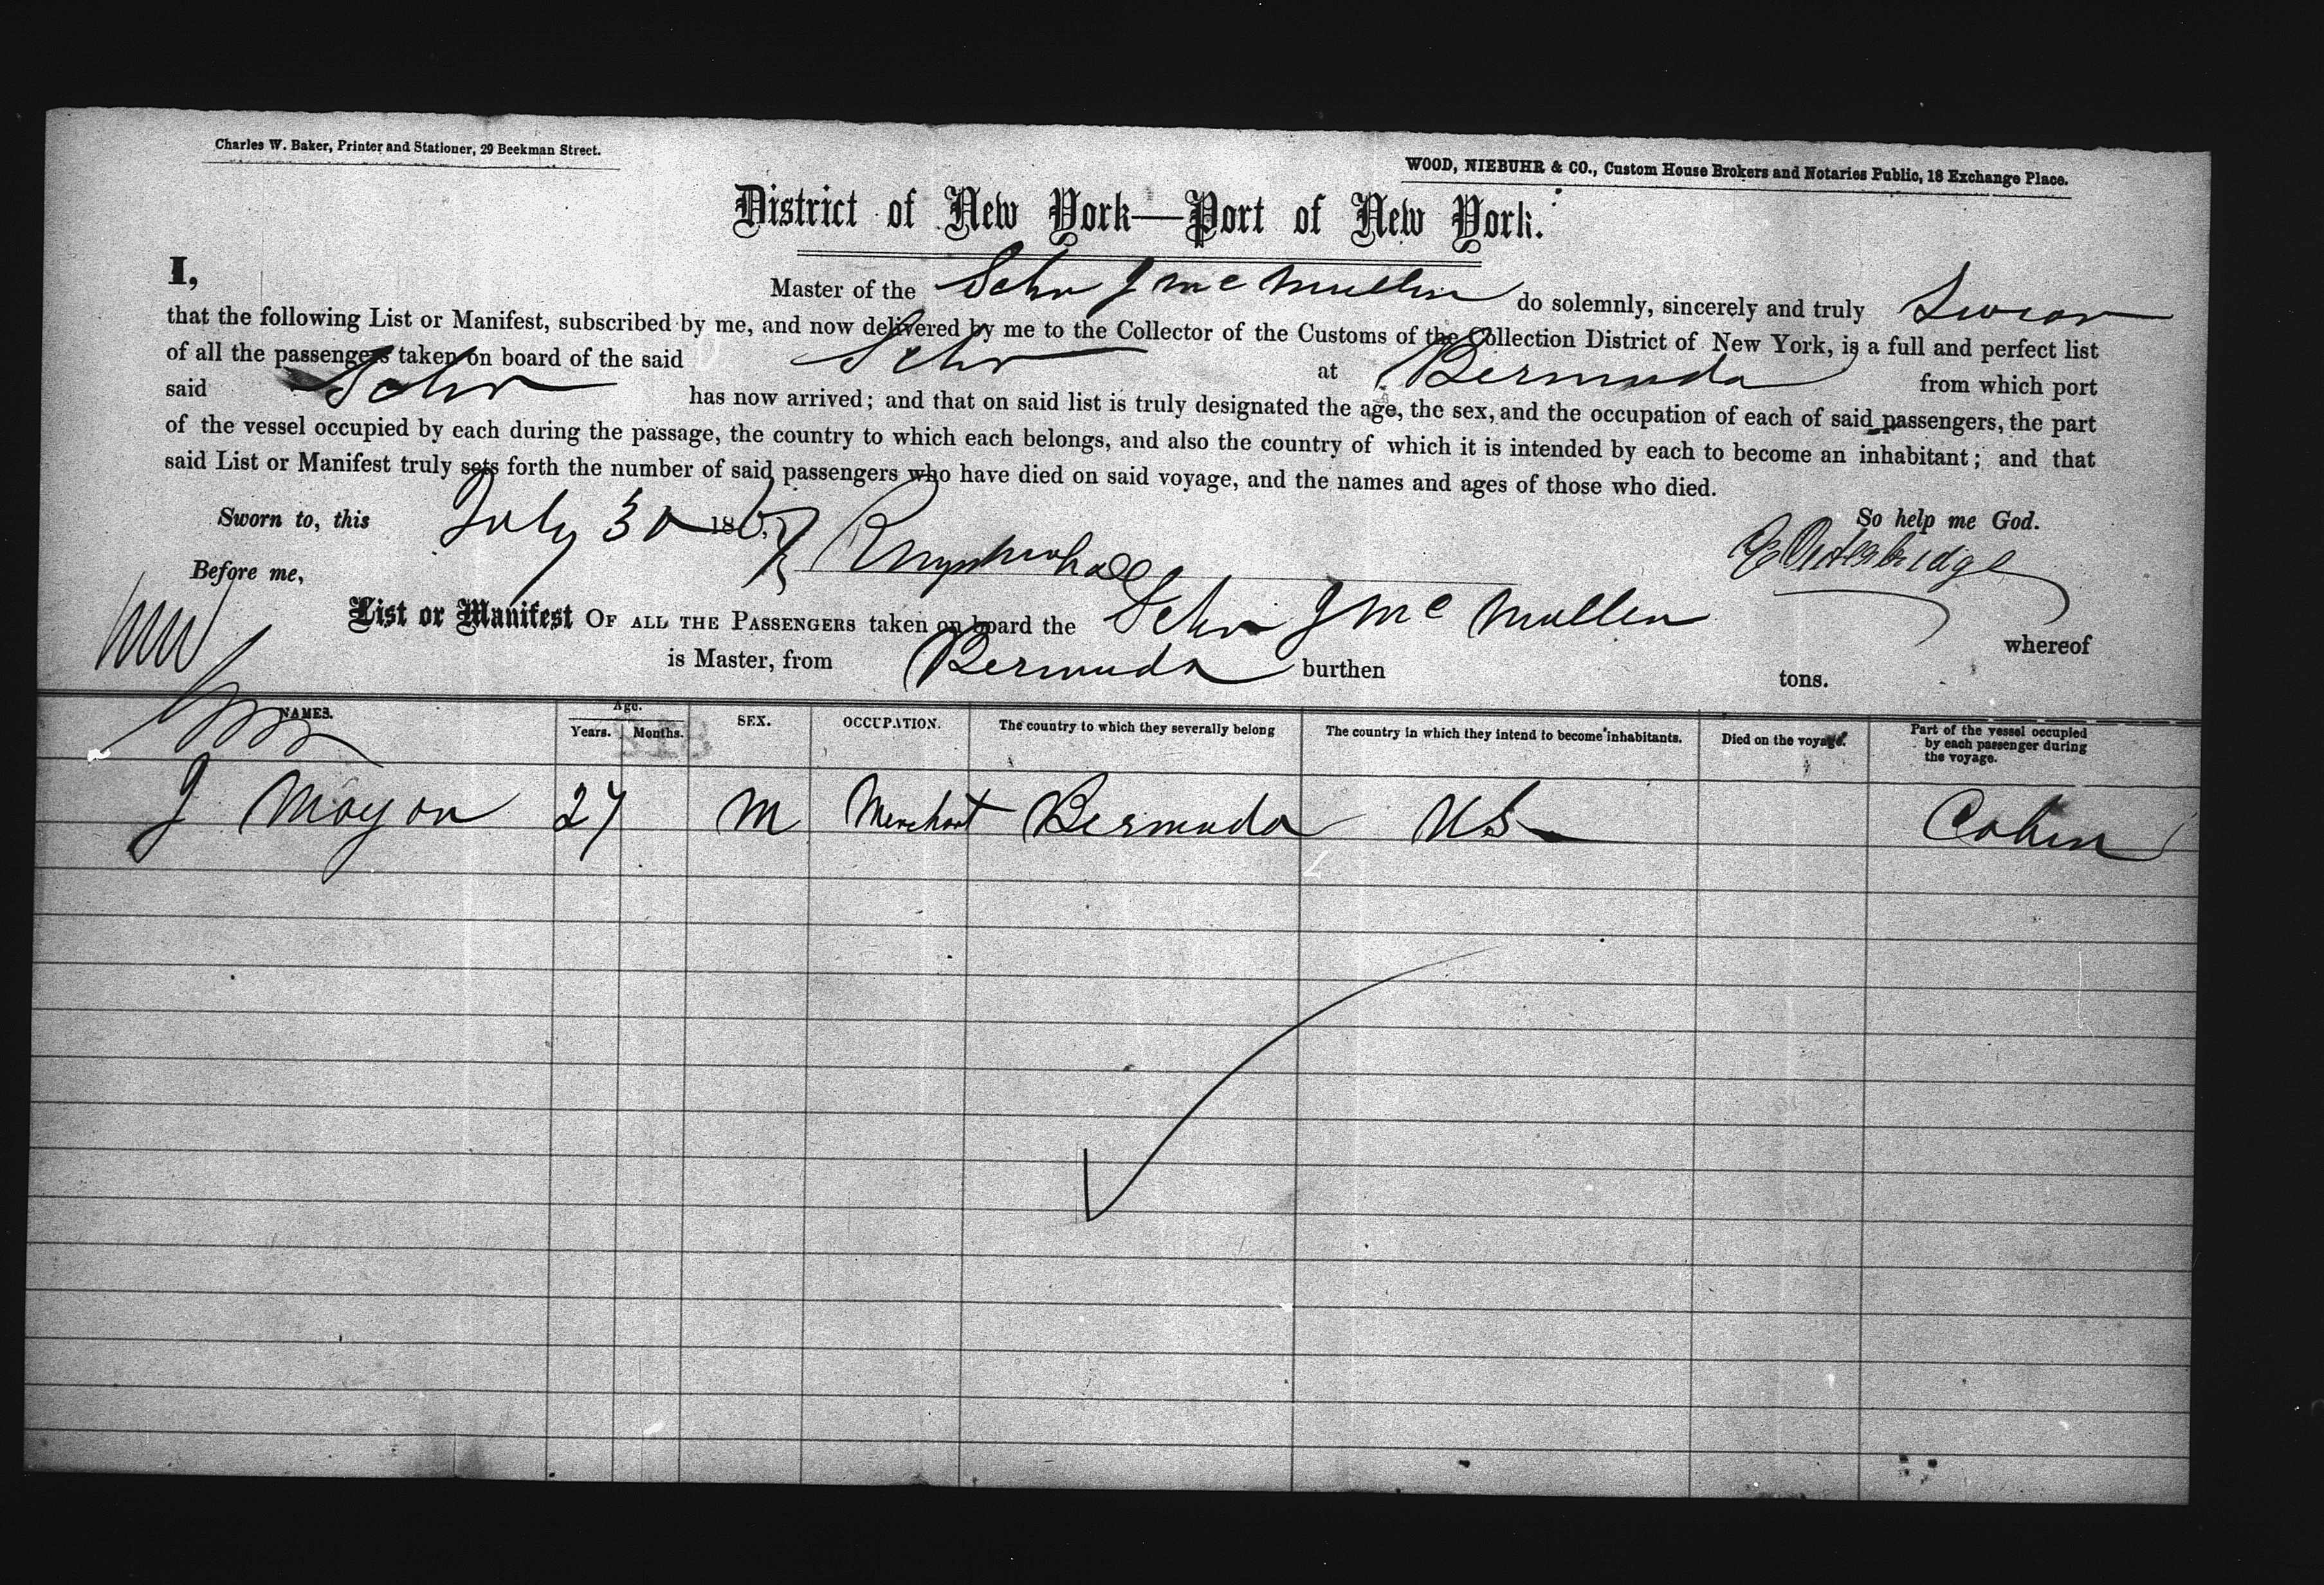 Charles W. Baker, Printer and Stationer, 29 Beekman Street.
WOOD, NIEBUHR & CO., Custom House Brokers and Notaries Public, 18 Exchange Place.
District of New York—Port of New York.
I, Master of the Schr J McMullin do solemnly, sincerely and truly Swear
that the following List or Manifest, subscribed by me, and now delivered by me to the Collector of the Customs of the Collection District of New York, is a full and perfect list
of all the passengers taken on board of the said Schr at Bermuda from which port
said Schr has now arrived; and that on said list is truly designated the age, the sex, and the occupation of each of said passengers, the part
of the vessel occupied by each during the passage, the country to which each belongs, and also the country of which it is intended by each to become an inhabitant; and that
said List or Manifest truly sets forth the number of said passengers who have died on said voyage, and the names and ages of those who died.
Sworn to, this July 186 So help me God.
Before me,
List or Manifest OF ALL THE PASSENGERS taken on board the Schr J McMullen whereof
is Master, from Bermuda burthen tons.
NAMES. Age. Years. Months. SEX. OCCUPATION. The country to which they severally belong The country in which they intend to become inhabitants. Died on the voyage. Part of the vessel occupied by each passenger during the voyage.
J 27 M Merchant Bermuda US Cabin